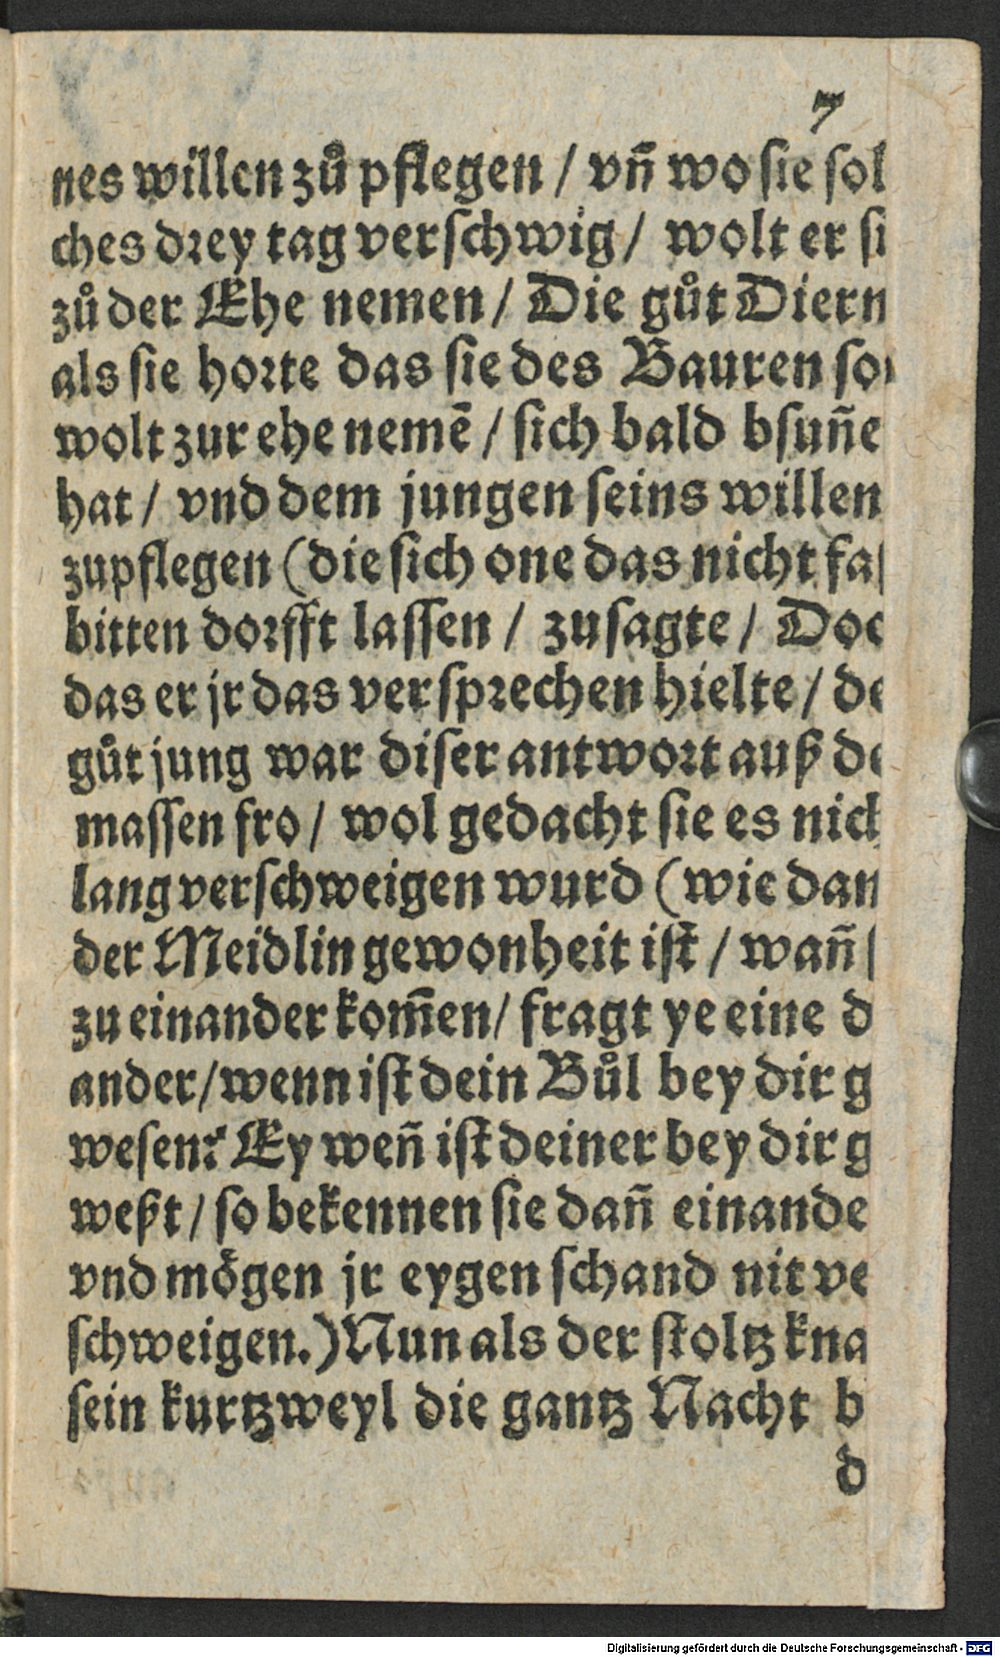 7
nes willen zů pflegen / vñ wo sie sol
ches drey tag verschwig / wolt er si
zů der Ehe nemen / Die gůt Diern
als sie horte das sie des Bauren so
wolt zur ehe nemẽ / sich bald bsuñe
hat / vnd dem jungen seins willen
zupflegen (die sich one das nicht fa
bitten dorfft lassen / zusagte / Doc
das er jr das versprechen hielte / de
gůt jung war diser antwort auß de
massen fro / wol gedacht sie es nich
lang verschweigen wurd (wie dan
der Meidlin gewonheit ist / wañ
zu einander kom̃en / fragt ye eine d
ander / wenn ist dein Bůl bey dir g
wesen? Ey weñ ist deiner bey dir g
weßt / so bekennen sie dañ einande
vnd mögen jr eygen schand nit ve
schweigen.) Nun als der stoltz kna
sein kurtzweyl die gantz Nacht b
d
Digitalisierung gefördert durch die Deutsche Forschungsgemeinschaft - DFG